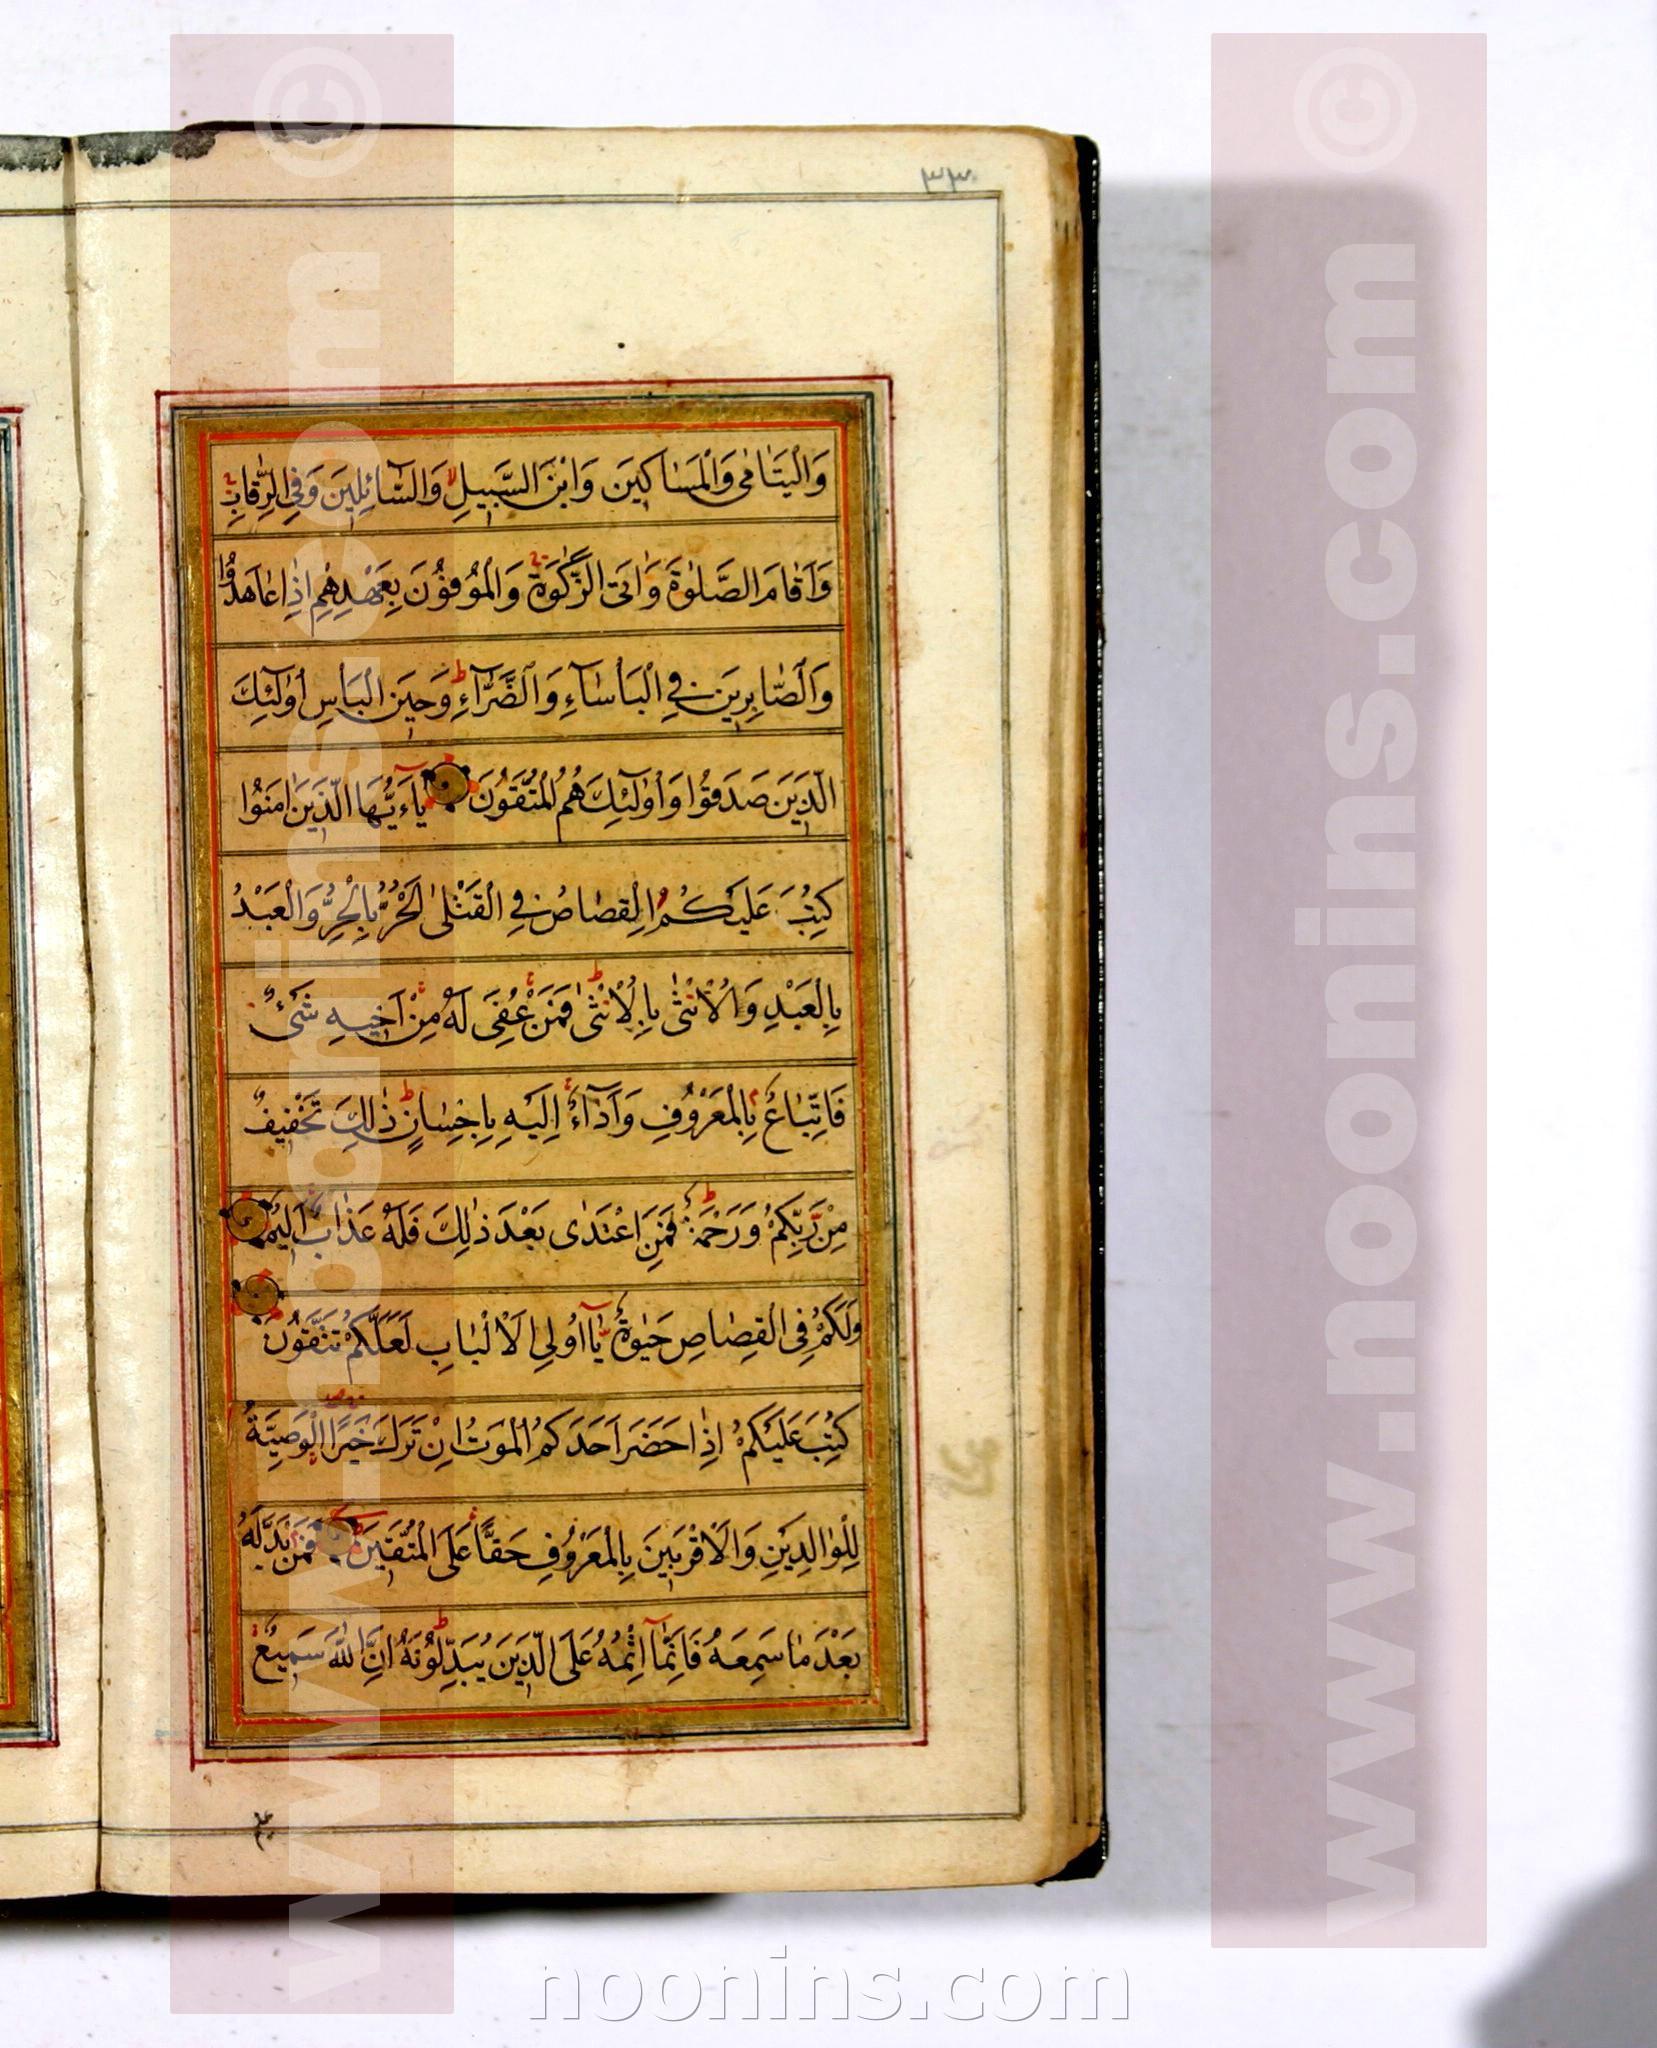 ۳۳
وَالْيَتَامٰى وَالْمَسَاكِينَ وَابْنَ السَّبِيلِ وَالسَّآئِلِينَ وَفِي الرِّقَابِ
وَاَقَامَ الصَّلٰوةَ وَاٰتَى الزَّكٰوةَ وَالْمُوفُونَ بِعَهْدِهِمْ اِذَا عَاهَدُوا
وَالصَّابِرِينَ فِي الْبَأْسَآءِ وَالضَّرَّآءِ وَحِينَ الْبَأْسِ اُولٰٓئِكَ
الَّذِينَ صَدَقُوا وَاُولٰٓئِكَ هُمُ الْمُتَّقُونَ يَآءَيُّهَا الَّذِينَ اٰمَنُوا
كُتِبَ عَلَيْكُمُ الْقِصَاصُ فِي الْقَتْلٰى اَلْحُرُّ بِالْحُرِّ وَالْعَبْدُ
بِالْعَبْدِ وَالْاُنْثٰى بِالْاُنْثٰى فَمَنْ عُفِيَ لَهُ مِنْ اَخِيهِ شَئٌ
فَاتِّبَاعٌ بِالْمَعْرُوفِ وَاَدَآءٌ اِلَيْهِ بِاِحْسَانٍ ذٰلِكَ تَخْفِيفٌ
مِنْ رَبِّكُمْ وَرَحْمَةٌ فَمَنِ اعْتَدٰى بَعْدَ ذٰلِكَ فَلَهُ عَذَابٌ اَلِيمٌ
وَلَكُمْ فِي الْقِصَاصِ حَيٰوةٌ يَآ اُولِي الْاَلْبَابِ لَعَلَّكُمْ تَتَّقُونَ
كُتِبَ عَلَيْكُمْ اِذَا حَضَرَ اَحَدَكُمُ الْمَوْتُ اِنْ تَرَكَ خَيْرًا الْوَصِيَّةُ
لِلْوَالِدَيْنِ وَالْاَقْرَبِينَ بِالْمَعْرُوفِ حَقًّا عَلَى الْمُتَّقِينَ فَمَنْ بَدَّلَهُ
بَعْدَ مَا سَمِعَهُ فَاِنَّمَآ اِثْمُهُ عَلَى الَّذِينَ يُبَدِّلُونَهُ اِنَّ اللّٰهَ سَمِيعٌ
www.noonins.com ©
www.noonins.com ©
noonins.com